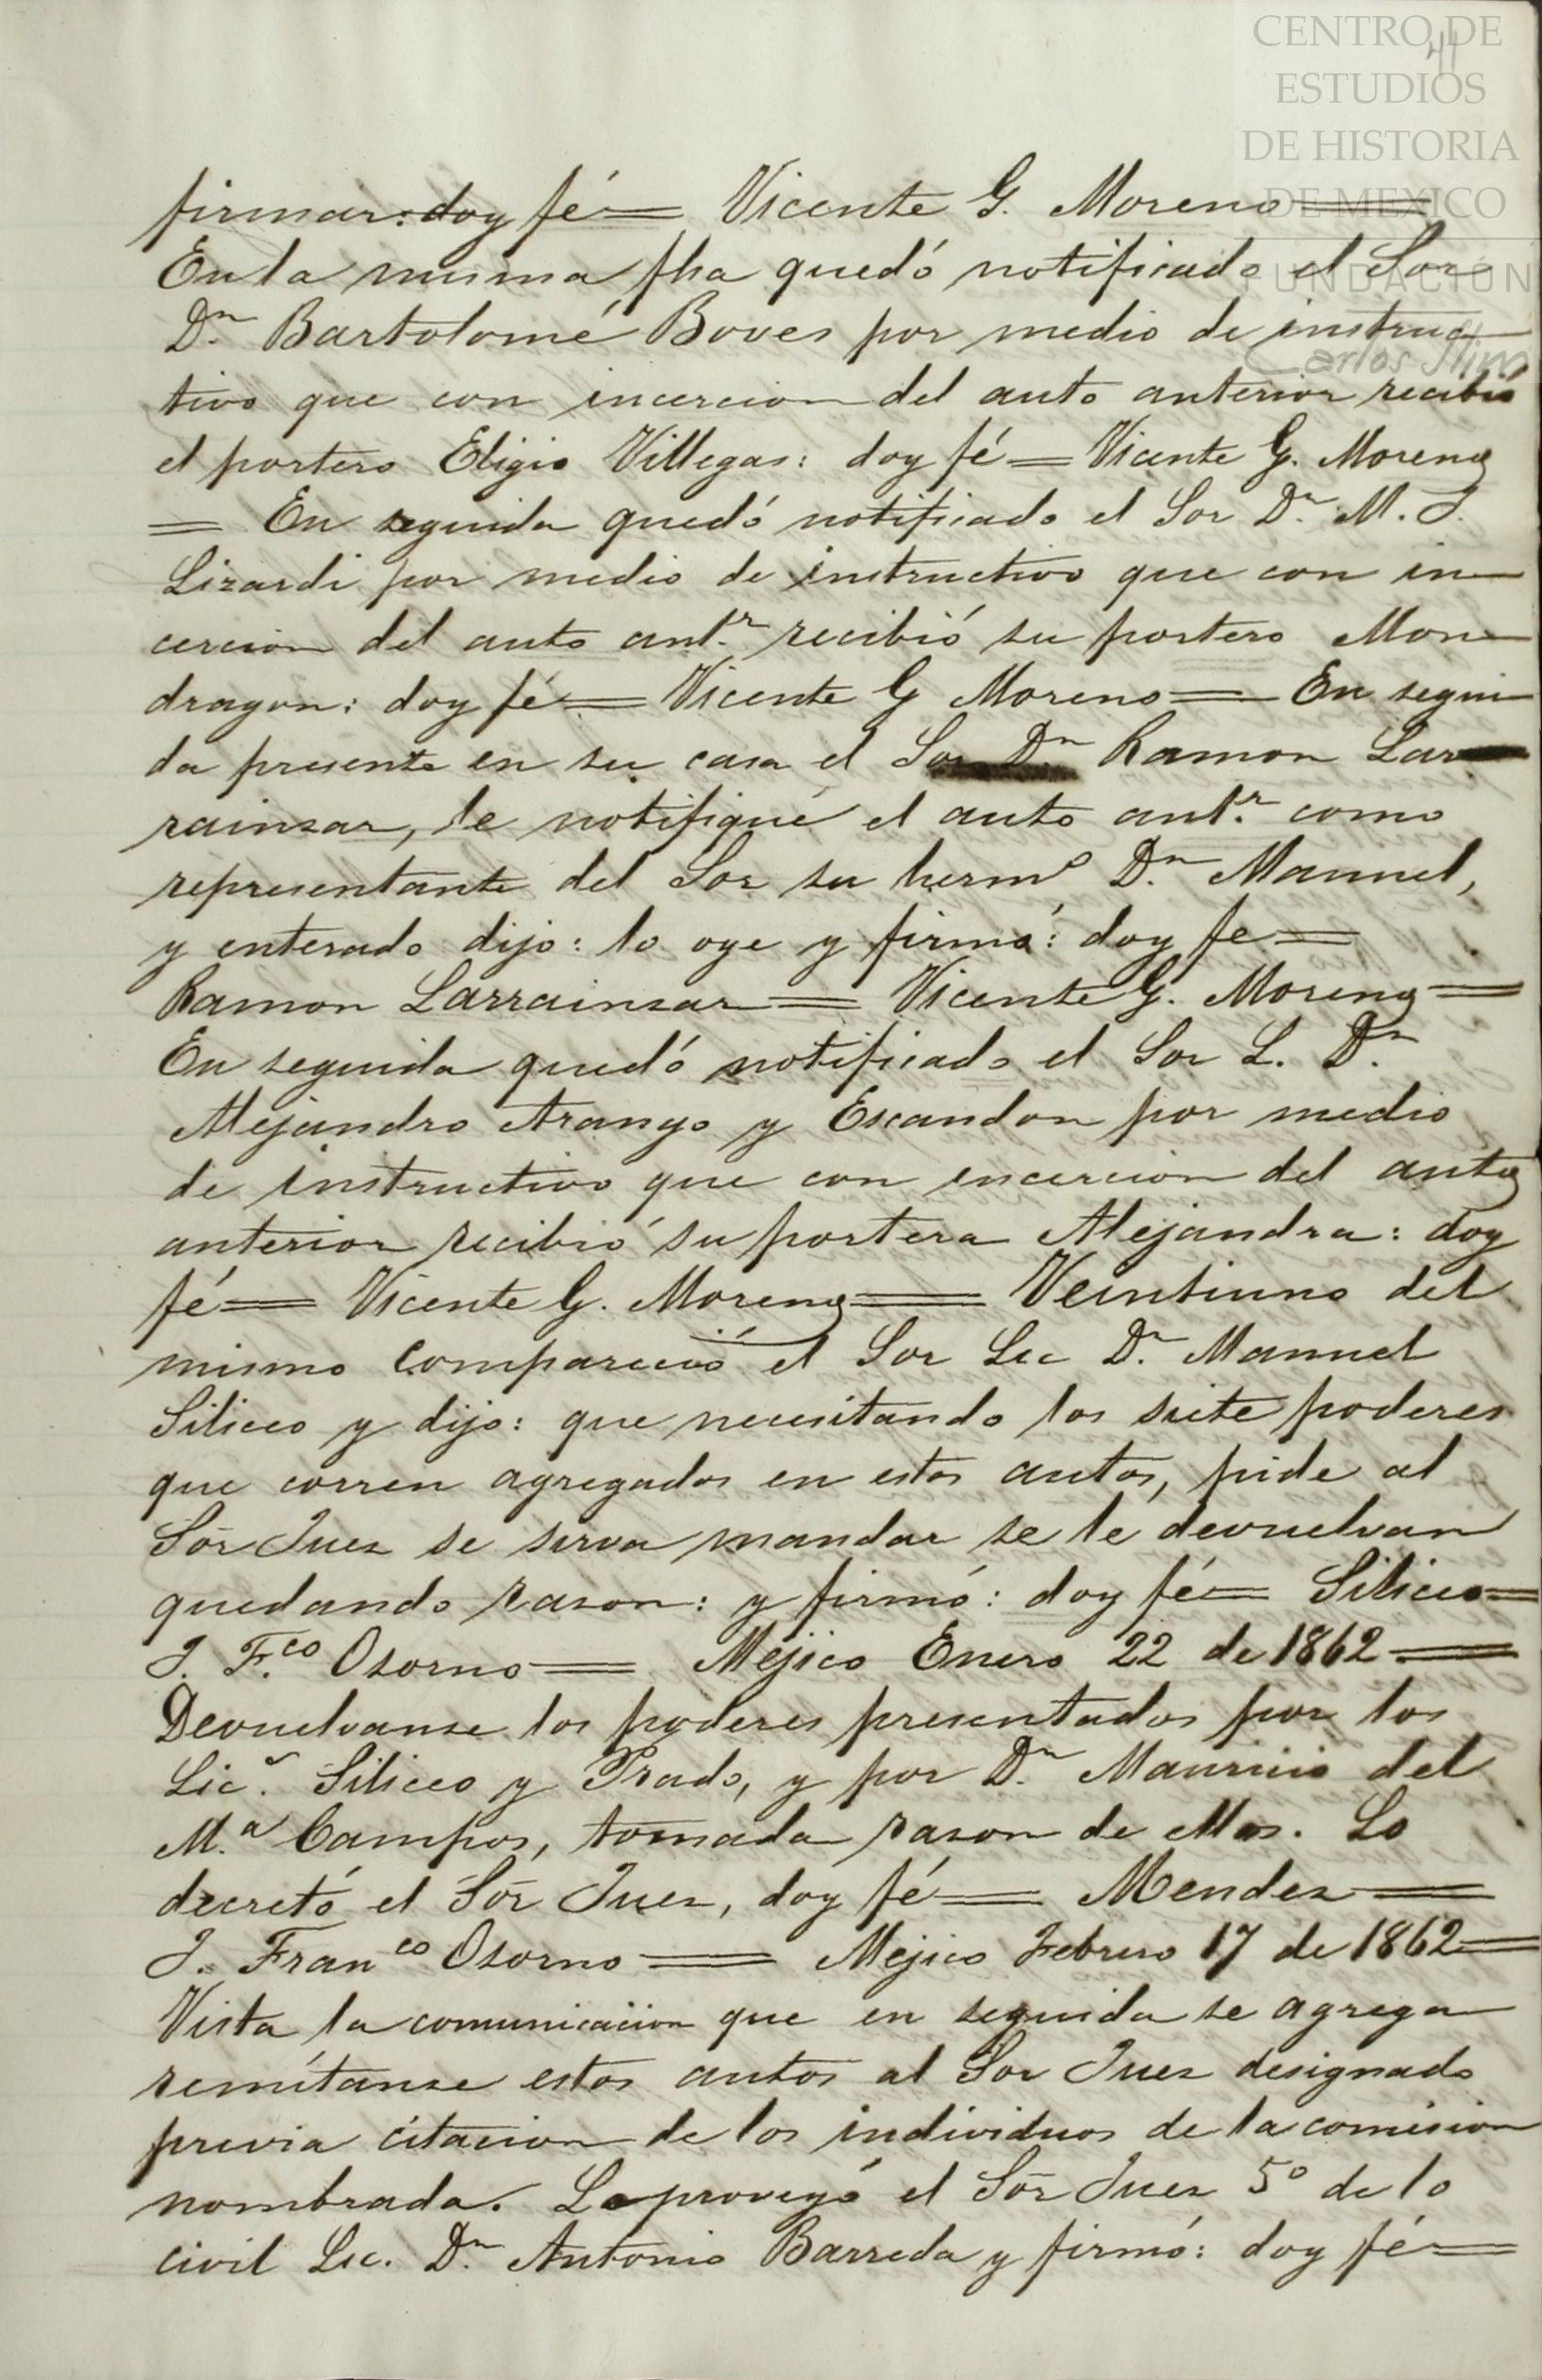 CENTRO DE
ESTUDIOS
DE HISTORIA
DE MEXICO
FUNDACIÓN
Carlos Slim
41
firmar: doy fé= Vicente G. Moreno=
En la misma fha quedó notificado el Sor
Dn. Bartolomé Boves por medio de instruc-
tivo que con incercion del auto anterior recibió
el portero Eligio Villegas: doy fé= Vicente G. Moreno
= En seguida quedó notificado el Sor Dn. M. J.
Lizardi por medio de instructivo que con in-
cercion del auto antr. recibió su portero Mon-
dragon: doy fé= Vicente G Moreno= En segui-
da presente en su casa el Sor Dn. Ramon Lar-
rainzar, le notifiqué el auto antr. como
representante del Sor su hermo Dn. Manuel,
y enterado dijo: lo oye y firmó: doy fe=
Ramon Larrainzar= Vicente G. Moreno=
En seguida quedó notificado el Sor L. Dn.
Alejandro Arango y Escandon por medio
de instructivo que con incercion del auto
anterior recibió su portera Alejandra: doy
fé= Vicente G. Moreno= Veintiuno del
mismo compareció el Sor Lic Dn. Manuel
Siliceo y dijo: que necesitando los siete poderes
que corren agregados en estos autos, pide al
Sōr Juez se sirva mandar se le devuelvan
quedando razon: y firmó: doy fé= Siliceo=
J. F.co Osorno= Méjico Enero 22 de 1862=
Devuelvanse los poderes presentados por los
Lic.s Siliceo y Prado, y por Dn. Mauricio del
M.a Campos, tomada razon de ellos. Lo
decretó el Sōr Juez, doy fé= Mendez=
J. Franco Osorno= Mejico Febrero 17 de 1862=
Vista la comunicacion que en seguida se agrega
remítanse estos autos al Sor Juez designado
previa citacion de los individuos de la comision
nombrada. Lo proveyó el Sōr Juez 5o de lo
civil Lic. Dn. Antonio Barreda y firmó: doy fé=